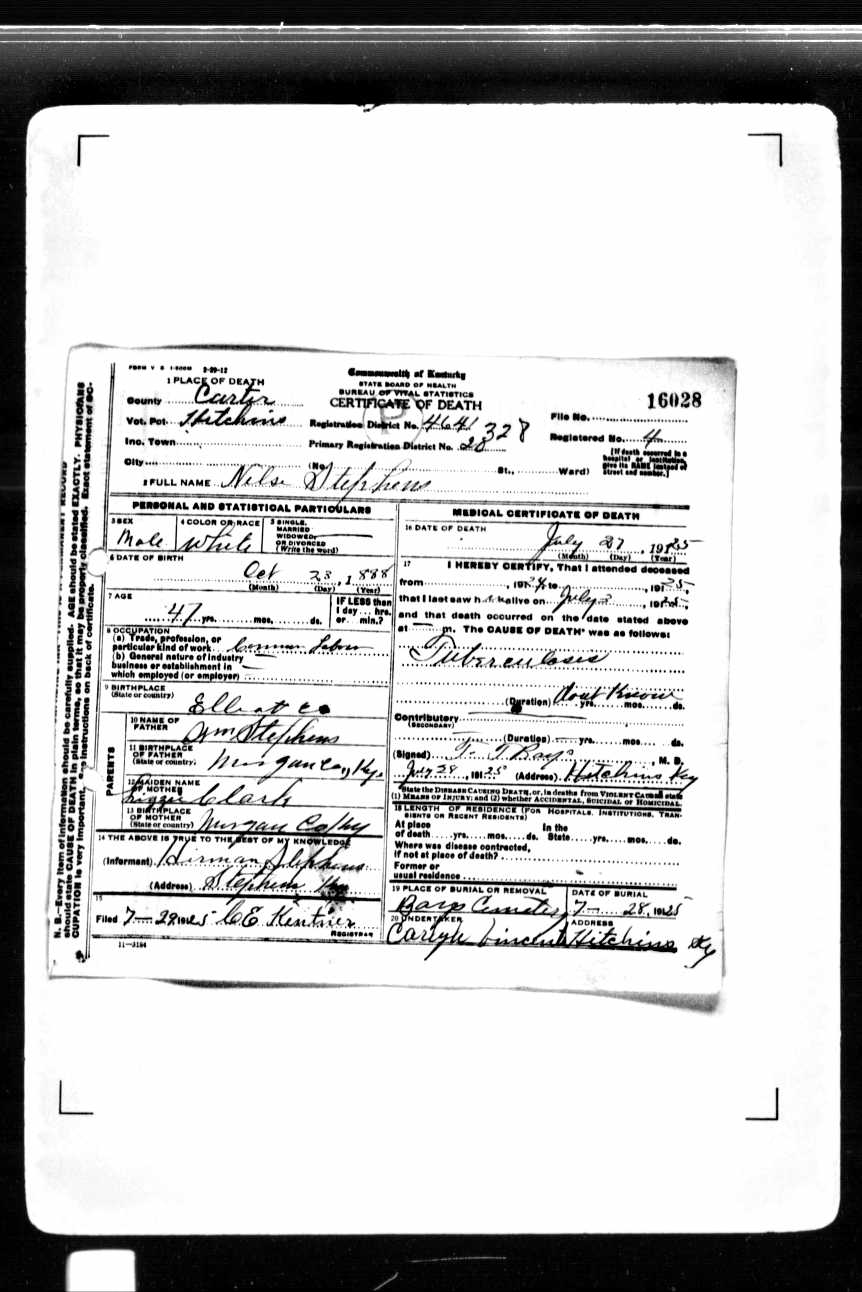 FORM V S 1-500M 2-29-12
Commonwealth of Kentucky
STATE BOARD OF HEALTH
BUREAU OF VITAL STATISTICS
CERTIFICATE OF DEATH
16028
1 PLACE OF DEATH
County Carter
Vot. Pct. Hitchins
Inc. Town
City
Registration District No. 4641 328
Primary Registration District No. 28
(No. St., Ward)
File No.
Registered No. 4
[If death occurred in a
hospital or institution,
give its NAME instead of
street and number.]
2 FULL NAME Nelse Stephens
PERSONAL AND STATISTICAL PARTICULARS
3 SEX Male
4 COLOR OR RACE White
5 SINGLE,
MARRIED
WIDOWED,
OR DIVORCED
(Write the word)
6 DATE OF BIRTH
Oct 23, 1888
(Month) (Day) (Year)
7 AGE
47 yrs. mos. ds.
IF LESS than
1 day hrs.
or min.?
8 OCCUPATION
(a) Trade, profession, or
particular kind of work Common Labor
(b) General nature of industry
business or establishment in
which employed (or employer)
9 BIRTHPLACE
(State or country)
Elliott Co
PARENTS
10 NAME OF
FATHER Wm Stephens
11 BIRTHPLACE
OF FATHER
(State or country) Morgan Co, Ky.
12 MAIDEN NAME
OF MOTHER
Lizzie Clark
13 BIRTHPLACE
OF MOTHER
(State or country) Morgan Co Ky
14 THE ABOVE IS TRUE TO THE BEST OF MY KNOWLEDGE
(Informant) Herman Stephens
(Address) Stephens Ky
15
Filed 7-29 1925 CE Kentner
REGISTRAR
11-3184
MEDICAL CERTIFICATE OF DEATH
16 DATE OF DEATH
July 27, 1925
(Month) (Day) (Year)
17 I HEREBY CERTIFY, That I attended deceased
from , 1924 to , 1925,
that I last saw h alive on July , 1925,
and that death occurred on the date stated above
at m. The CAUSE OF DEATH* was as follows:
Tuberculosis
(Duration) Dont Know yrs. mos. ds.
Contributory
(SECONDARY)
(Duration) yrs. mos. ds.
(Signed) , M. D.
July 28, 1925 (Address) Hitchins Ky
*State the DISEASE CAUSING DEATH, or, in deaths from VIOLENT CAUSES state
(1) MEANS OF INJURY; and (2) whether ACCIDENTAL, SUICIDAL OR HOMICIDAL.
18 LENGTH OF RESIDENCE (FOR HOSPITALS, INSTITUTIONS, TRAN-
SIENTS OR RECENT RESIDENTS)
At place
of death yrs. mos. ds. In the
State yrs. mos. ds.
Where was disease contracted,
if not at place of death?
Former or
usual residence
19 PLACE OF BURIAL OR REMOVAL
Cemetery
DATE OF BURIAL
7- 28, 1925
20 UNDERTAKER
Vincent
ADDRESS
Hitchins Ky
N. B.—Every item of information should be carefully supplied. AGE should be stated EXACTLY. PHYSICIANS
should state CAUSE OF DEATH in plain terms, so that it may be properly classified. Exact statement of OC-
CUPATION is very important. See instructions on back of certificate.